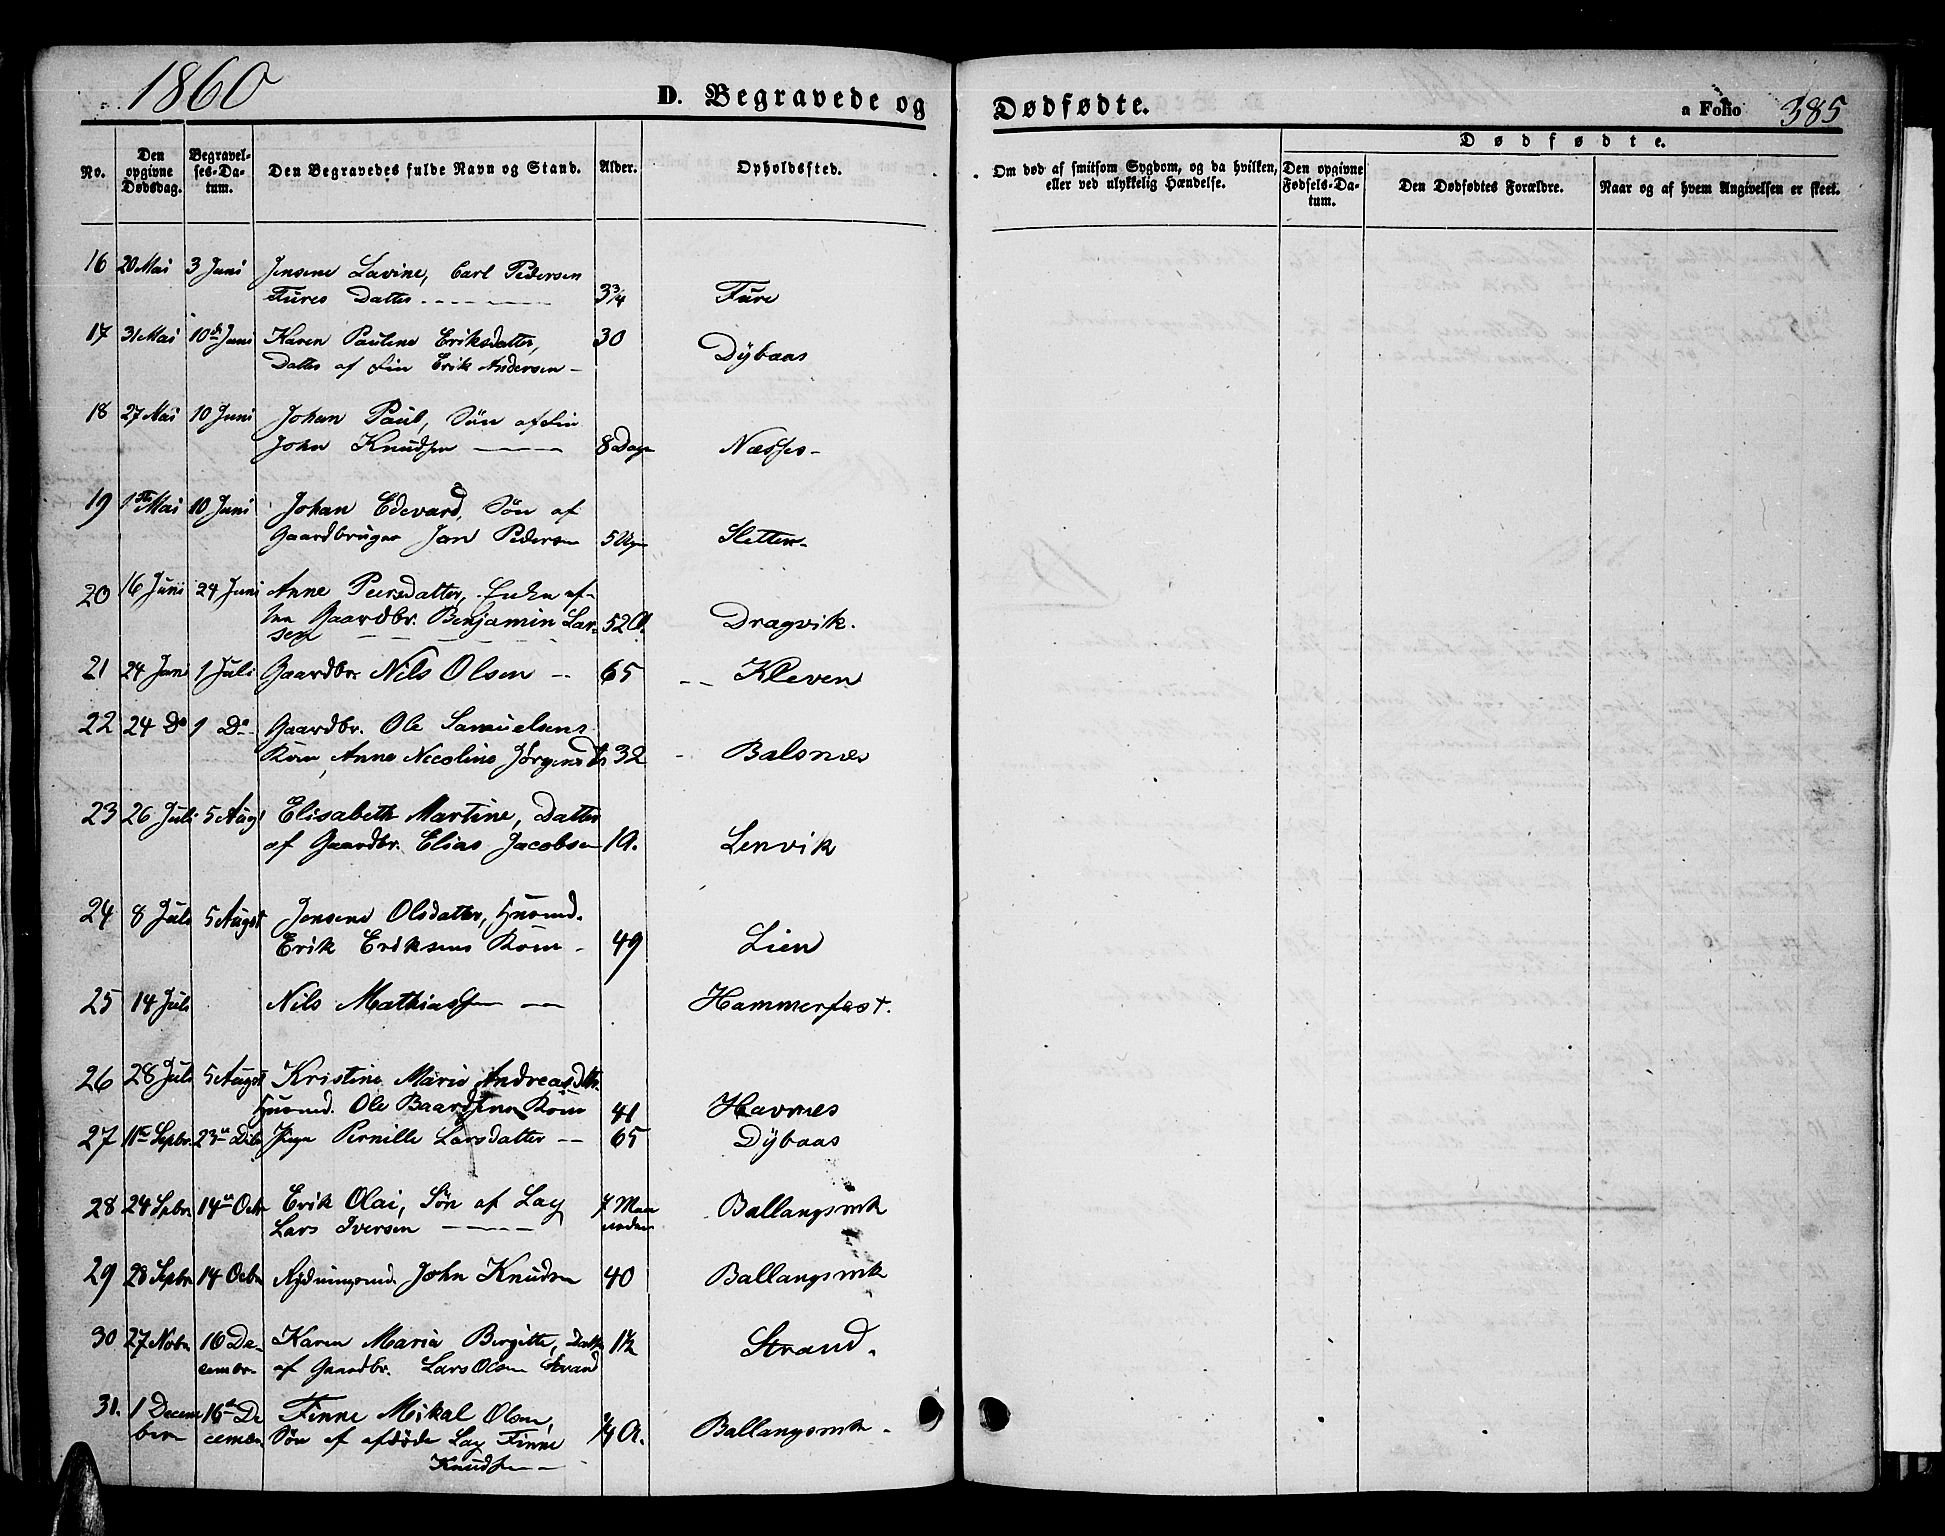 1860
D. Begravede og Dødfødte.
a Folio 385
No.
Den opgivne Dødsdag.
Begravelses-Datum.
Den Begravedes fulde Navn og Stand.
Alder.
Opholdssted.
Om død af smitsom Sygdom, og da hvilken, eller ved ulykkelig Hændelse.
Dødfødte.
Den opgivne Fødsels-Datum.
Den Dødfødtes Forældre.
Naar og af hvem Angivelsen er skeet.
16 20 Mai 3 Juni Jensene Lavine, Carl Pedersen
Fures Datter 3¾ Fure
17 31 Mai 10de Juni Karen Pauline Eriksdatter, 30
Datter af Fin Erik Andersen - Dÿbaas
18 27 Mai 10 Juni Johan Paul, Søn af Fin
John Knudsen 8 Dage Næsse
19 1ste Mai 10 Juni Johan Edevard, Søn af
Gaardbruger Jon Pedersen 5 Uger Sletten
20 16 Juni 24 Juni Anne Peersdatter, Enke af
Gaardbr. Benjamin Lar-
sen 52 A. Dragvik.
21 24 Juni 1 Juli Gaardbr. Nils Olsen 65 Kleven
22 24 Do 1 Do Gaardbr. Ole Samuelsens
Kone, Anne Nicoline Jørgensdtr 32 Balsnes
23 26 Juli 5 Augst Elisabeth Martine, Datter
af Gaardbr. Elias Jacobsen 1 A. Lenvik
24 8 Juli 5 Augst Jensene Olsdatter, Huusmd.
Erik Eriksens Kone - 49 Lien
25 14 Juli Nils Mathiassen Hammerfest.
26 28 Juli 5 Augst Kristine Marie Andreasdtr.
Huusmd. Ole Baardsens Kone 41 Havnes
27 11te Sepbr. 23de Pige Pernille Larsdatter 65 Dÿbaas
28 24 Sepbr 14de Octr Erik Olai, Søn af Lap
Lars Iversen 7 Maaneder Ballangsmk
29 28 Sepbr 14 Octbr Rydningsmd. John Knudsen 40 Ballangsmk
30 27 Novbr 16 De- Karen Maria Birgitte, Datter
cember af Gaardbr. Lars Olsen Strand 1½ Strand.
31. 1 Decem- 16de De Finne Mikal Olsen,
ber cember Søn af afdøde Lap Finne
Knudsen ¼ A. Ballangsmk